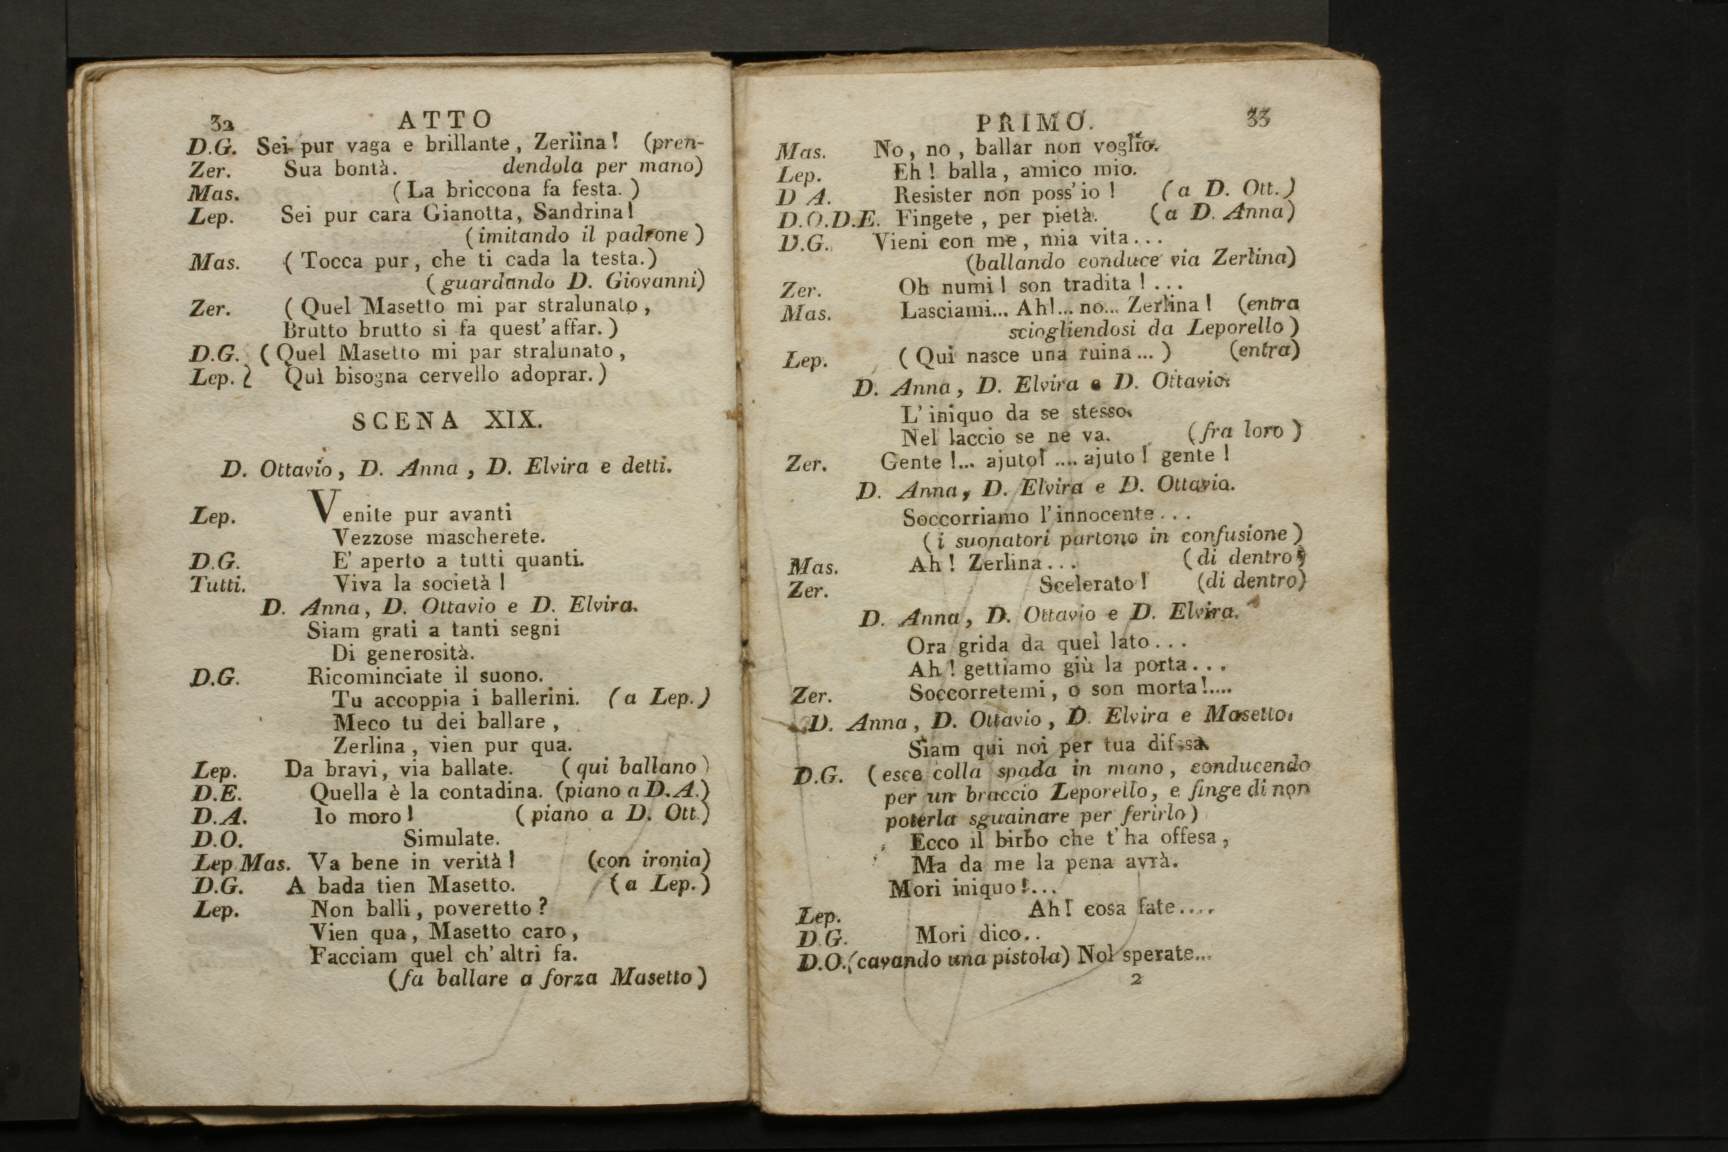 32 ATTO
D.G. Sei pur vaga e brillante, Zerlina! (pren-
Zer. Sua bontà. dendola per mano)
Mas. (La briccona fa festa.)
Lep. Sei pur cara Gianotta, Sandrina!
(imitando il padrone)
Mas. (Tocca pur, che ti cada la testa.)
(guardando D. Giovanni)
Zer. (Quel Masetto mi par stralunato,
Brutto brutto si fa quest' affar.)
D.G. (Quel Masetto mi par stralunato,
Lep. Quì bisogna cervello adoprar.)
SCENA XIX.
D. Ottavio, D. Anna, D. Elvira e detti.
Lep. Venite pur avanti
Vezzose mascherete.
D.G. E' aperto a tutti quanti.
Tutti. Viva la società!
D. Anna, D. Ottavio e D. Elvira.
Siam grati a tanti segni
Di generosità.
D.G. Ricominciate il suono.
Tu accoppia i ballerini. (a Lep.)
Meco tu dei ballare,
Zerlina, vien pur qua.
Lep. Da bravi, via ballate. (qui ballano)
D.E. Quella è la contadina. (piano a D.A.)
D.A. Io moro! (piano a D. Ott.)
D.O. Simulate.
Lep Mas. Va bene in verità! (con ironia)
D.G. A bada tien Masetto. (a Lep.)
Lep. Non balli, poveretto?
Vien qua, Masetto caro,
Facciam quel ch' altri fa.
(fa ballare a forza Masetto)
PRIMO. 33
Mas. No, no, ballar non voglio.
Lep. Eh! balla, amico mio.
D A. Resister non poss' io! (a D. Ott.)
D.O.D.E. Fingete, per pietà. (a D. Anna)
D.G. Vieni con me, mia vita...
(ballando conduce via Zerlina)
Zer. Oh numi! son tradita!...
Mas. Lasciami... Ah!... no... Zerlina! (entra
sciogliendosi da Leporello)
Lep. (Qui nasce una ruina...) (entra)
D. Anna, D. Elvira e D. Ottavio.
L' iniquo da se stesso.
Nel laccio se ne va. (fra loro)
Zer. Gente!... ajuto! .... ajuto! gente!
D. Anna, D. Elvira e D. Ottavio.
Soccorriamo l' innocente...
(i suonatori partono in confusione)
Mas. Ah! Zerlina... (di dentro)
Zer. Scelerato! (di dentro)
D. Anna, D. Ottavio e D. Elvira.
Ora grida da quel lato...
Ah! gettiamo giù la porta...
Zer. Soccorretemi, o son morta!....
D. Anna, D. Ottavio, D. Elvira e Masetto.
Siam qui noi per tua difesa.
D.G. (esce colla spada in mano, conducendo
per un braccio Leporello, e finge di non
poterla sguainare per ferirlo)
Ecco il birbo che t' ha offesa,
Ma da me la pena avrà.
Mori iniquo!...
Lep. Ah! cosa fate....
D.G. Mori dico..
D.O. (cavando una pistola) Nol sperate...
2